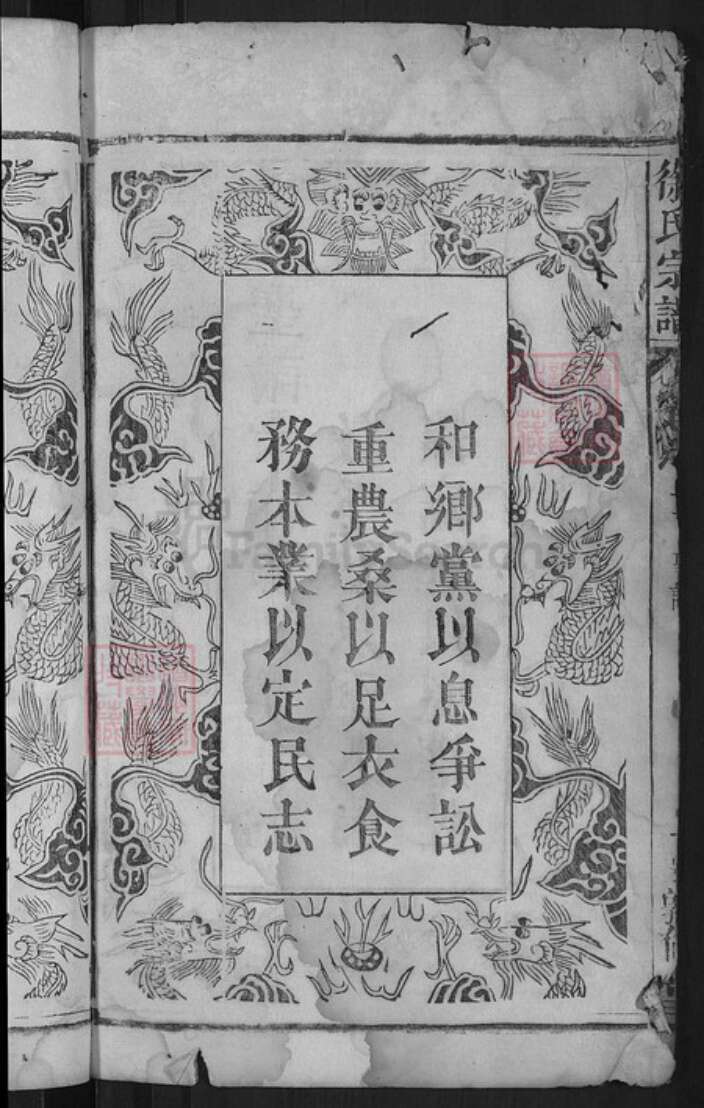 徐氏宗譜
和鄉黨以息爭訟
重農桑以足衣食
務本業以定民志
FamilySearch